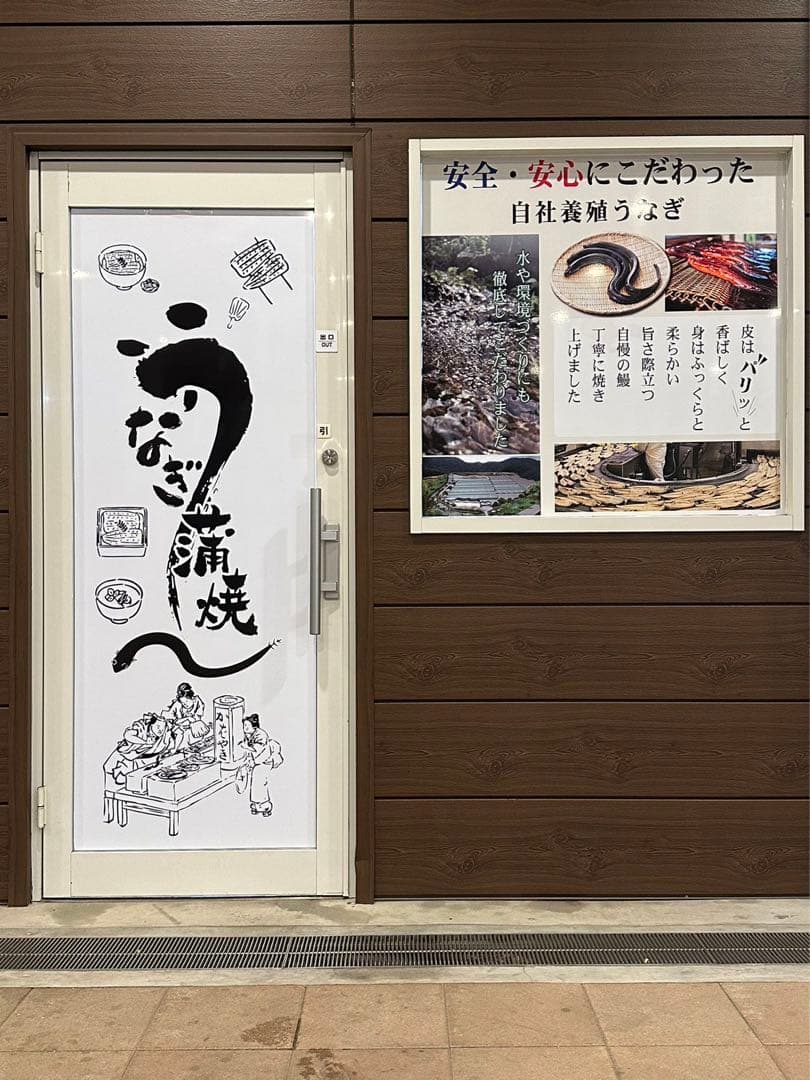 うなぎ
蒲焼
かばやき
出口
OUT
引
安全・安心にこだわった
自社養殖うなぎ
水や環境づくりにも
徹底してこだわりました
皮はパリッと
香ばしく
身はふっくらと
柔らかい
旨さ際立つ
自慢の鰻
丁寧に焼き
上げました